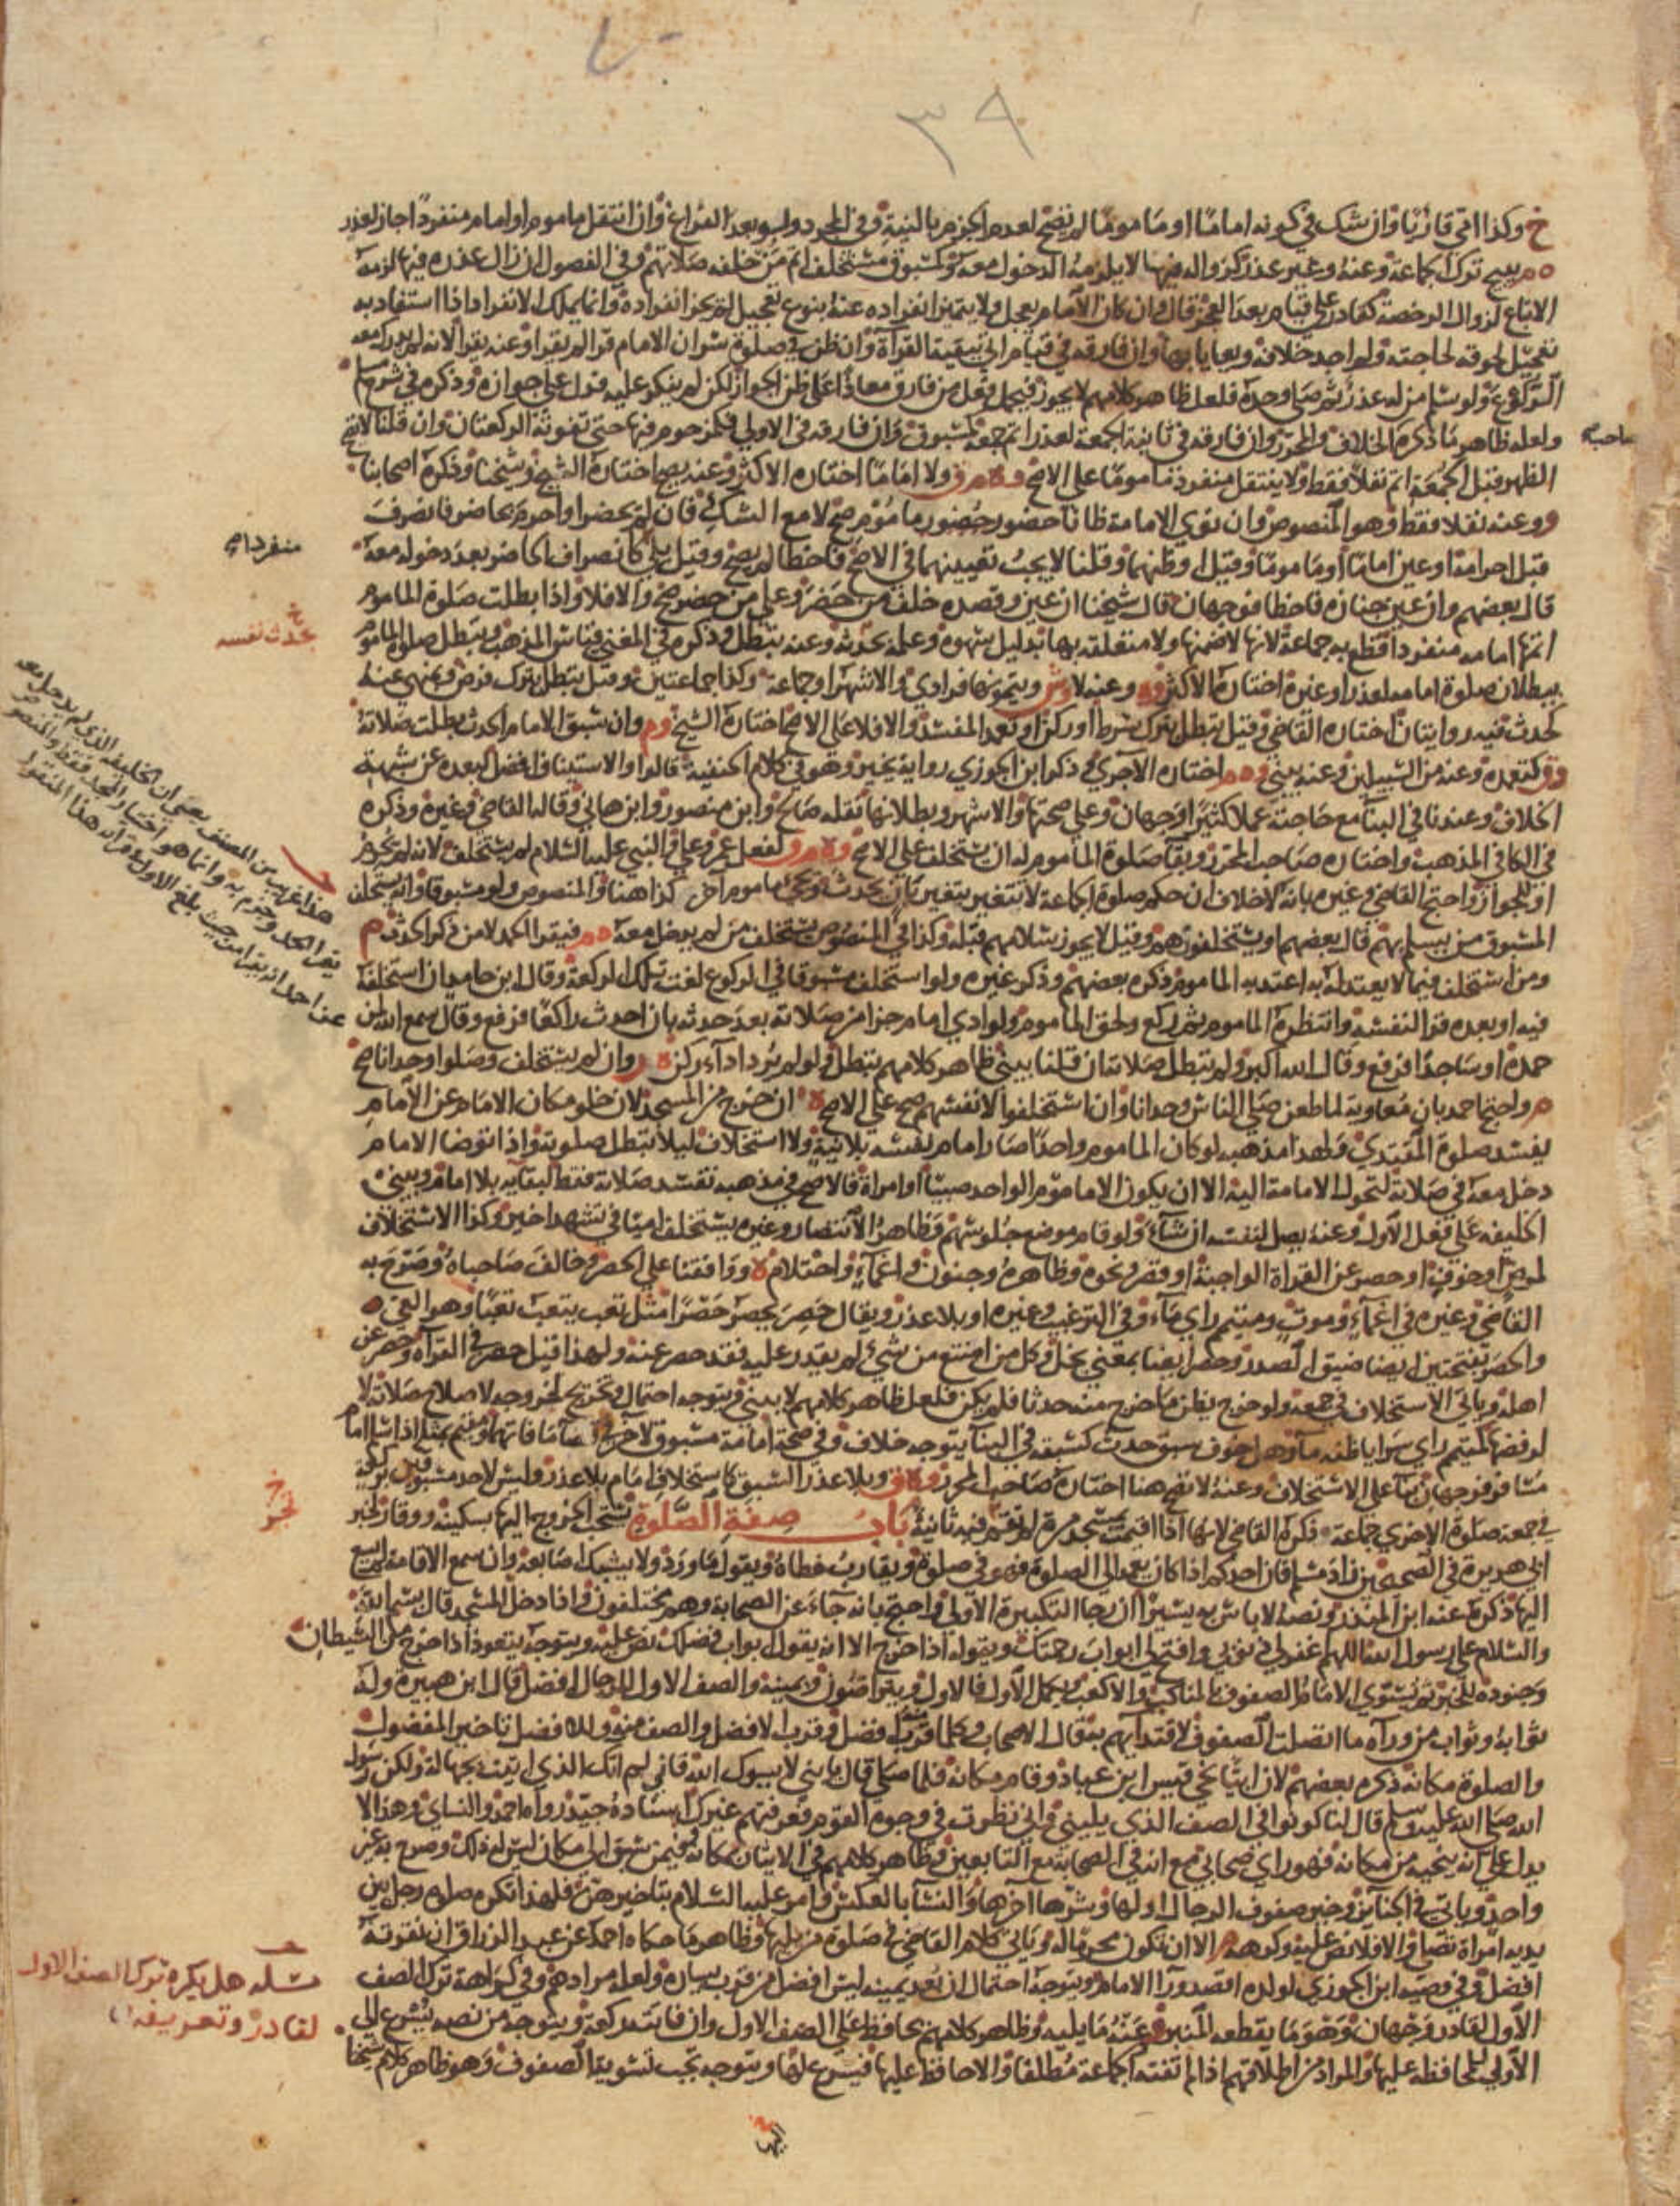 ٣٩
وكذا امي قارئا وان شك في كونه اماما او ماموما لم يصح لعدم الجزم بالنية وفي المجرد ولو بعد الفراغ وان انتقل ماموم او امام منفردا جاز لعذر
يبيح ترك الجماعة وعنه وغير عذر كزواله فيها لا يلزمه الدخول معه وكمسبوق مستخلف اتم من خلفه صلاتهم وفي الفصول ان زال عذره فيها لزمه
الاتباع لزوال الرخصة كقادر على قيام بعد العجز قال وان كان الامام يعجل ولا يتميز انفراده عنه بنوع تعجيل لم يجز انفراده وانما يملك الانفراد اذا استفاد به
تعجيل لحوقه لحاجته ولم اجد خلافه ويعايا بها وان فارقه في قيام اتى ببقية القراة وان ظن في صلوة سر ان الامام قرا لم يقرا وعنه يقرا لانه لم يدرك معه
الركوع ولو سلم من له عذر ثم صلى وحده فلعل ظاهر كلامهم لا يجوز فيحمل فعل من فارق معاذا على ظن الجواز لكن لم ينكر عليه فدل على جوازه وذكره في شرح مسلم
ولعله ظاهر ما ذكره الخلاف والمحرر وان فارقه في ثانية الجمعة لعذر اتم جمعة كمسبوق وان فارقه في الاولى فكمزحوم فيها حتى تفوته الركعتان وان قلنا لا تصح
الظهر قبل الجمعة اتم نفلا فقط ولا ينتقل منفرد ماموما على الاصح ولا اماما اختاره الاكثر وعنه يصح اختاره الشيخ وشيخنا وذكره اصحابنا
وعنه نفلا فقط وهو المنصوص وان نوى الامامة ظانا حضور ماموم صح لا مع الشك فان لم يحضر او احرم بحاضر فانصرف
قبل احرامه او عين اماما او ماموما وقيل او ظنهما وقلنا لا يجب تعيينهما في الاصح فاخطا لم يصح وقيل بلى كانصراف الحاضر بعد دخوله معه
قال بعضهم وان عين جنازة فاخطا فوجهان قال شيخنا ان عين وقصده خلف من حضر وعلى من حضر صح والا فلا واذا بطلت صلوة الماموم
اتمها امامه منفردا قطع به جماعة لانها لا ضمنها ولا متعلقة بها بدليل سهوه وعلمه بحدثه وعنه تبطل وذكره في المغني قياس المذهب وتبطل صلوة الماموم
ببطلان صلوة امامه لعذر او غيره اختاره الاكثر وعنه لا ويتمونها فرادى والاشهر او جماعة وكذا جماعتين وقيل تبطل بترك فرض ومنهي عنه
كحدث فيه روايتان اختاره القاضي وقيل تبطل بترك شرط او ركن او تعمد المفسد والا فلا على الاصح اختاره الشيخ وان سبق الامام الحدث بطلت صلاته
كتعمده وعنه من السبيلين وعنه يبني اختاره الآجري وذكر ابن الجوزي رواية يخير وهو في كلام الحنفية قالوا والاستيناف افضل لبعده عن شبهة
الخلاف وعندنا في البنا مع حاجته عملا كثيرا وجهان وعلى صحتها والاشهر وبطلانها نقله صالح وابن منصور وابن هاني وقاله القاضي وغيره وذكره
في الكافي المذهب واختاره صاحب المحرر وبقا صلوة الماموم له ان يستخلف على الاصح لفعل عمر وعلي والنبي عليه السلام لم يستخلف لانه لم تحرم
او للجواز واحتج القاضي وغيره بانه لا خلاف ان حكم صلوة الجماعة لا تتغير بتغير بان يحدث ويجي ماموم آخر كذا هنا والمنصوص ولو مسبوقا وانه يستخلف
المسبوق من يسلم بهم قال بعضهم او يستخلفون هم وقيل لا يجوز سلامهم قبله وكذا في المنصوص يستخلف من لم يدخل معه فيقرا الحمد لا من ذكر الحدث
ومن استخلف فيما لا يعتد له به اعتد به الماموم ذكره بعضهم وذكر غيره ولو استخلف مسبوقا في الركوع لغت تلك الركعة وقال ابن حامد ان استخلفه
فيه او بعده قرا لنفسه وانتظره الماموم ثم ركع ولحق الماموم ولو ادى امام جزا من صلاته بعد حدثه بان احدث راكعا فرفع وقال سمع الله لمن
حمده او ساجدا فرفع وقال الله اكبر ولم تبطل صلاته ان قلنا يبني ظاهر كلامهم تبطل ولو لم يرد اداء ركن وان لم يستخلف وصلوا وحدانا صح
واحتج احمد بان معاوية لما طعن صلى الناس وحدانا وان استخلفوا لانفسهم صح على الاصح ان خرج من المسجد لان خلو مكان الامام عن الامام
يفسد صلوة المقتدي ولهذا مذهبه لو كان الماموم واحدا صار امام نفسه بلا نية ولا استخلاف ليلا تبطل صلوته واذا توضا الامام
دخل معه في صلاته لتحول الامامة اليه الا ان يكون الماموم الواحد صبيا او امراة فالاصح في مذهبه تفسد صلاته فقط لبقايه بلا امام ويبني
الخليفة على فعل الاول وعنه يصل لنفسه ان شاء ولو قام موضع جلوسهم فظاهر الانتصار وغيره يستخلف اميا في تشهد اخير وكذا الاستخلاف
لمرض او خوف او حصر عن القراة الواجبة او قصر ونحوه وظاهره وجنون واغماء واحتلام ووافقنا على الحصر وخالف صاحباه وصرح به
القاضي وغيره في اغماء وموت ومتيمم راى ماء وفي الترغيب وغيره او بلا عذر ويقال حصر يحصر حصرا مثل تعب يتعب تعبا وهو العي
والحصر بفتحتين ايضا ضيق الصدر وحصر ايضا بمعنى بخل وكل من امتنع من شيء لم يقدر عليه فقد حصر عنه ولهذا قيل حصر في القراه وحصر عن
اهله وياتي الاستخلاف في جمعة ولو خرج يظن ما خرج منه حدثا فلم يكن فلعل ظاهر كلامهم لا يبني ويتوجه احتمال وتخريج لخروجه لاصلاح صلاته لا
لرفضها كمتيمم راى سرابا ظنه ماء وهل خوف سبق حدث كسبقه في البنا يتوجه خلاف وفي صحة امامة مسبوق لآخر في قضاء ما فاتهما ومقيم بمثله اذا سلم امام
مسافر وجهان بنا على الاستخلاف وعنه لا تصح هنا اختاره صاحب المحرر وبلا عذر السبق كاستخلاف امام بلا عذر وليس لاحد مسبوقين بركعة
في جمعة صلوة الاخرى جماعة ذكره القاضي لانها اذا اقيمت بمسجد مرة لم تقم فيه ثانية باب صفة الصلوة يستحب الخروج اليها بسكينة ووقار لخبر
ابي هريرة في الصحيحين زاد مسلم فان احدكم اذا كان يعمد الى الصلوة فهو في صلوة ويقارب خطاه ويقول ما ورد ولا يشبك اصابعه وان سمع الاقامة لم يسع
اليها ذكره عنه ابن المنذر ونصه لا باس به يسيرا ان رجا التكبيرة الاولى واحتج بانه جاء عن الصحابة وهم مختلفون واذا دخل المسجد قال بسم الله
والسلام على رسول الله اللهم اغفر لي ذنوبي وافتح لي ابواب رحمتك ويقوله اذا خرج الا انه يقول ابواب فضلك نص عليه ويتوجه يتعوذ اذا خرج من الشيطان
وجنوده للخبر ثم يسوي الامام الصفوف بالمناكب والاكعب ويكمل الاول فالاول ويتراصون ويمينه والصف الاول للرجال افضل قال ابن هبيرة وله
ثوابه وثواب من وراه ما اتصلت الصفوف لاقتدايهم به قال الاصحاب وكلما قرب منه افضل وقرب الافضل والصف منه وللافضل تاخير المفضول
والصلوة مكانه ذكره بعضهم لان ابيا نحى قيس ابن عباد وقام مكانه فلما صلى قال يا بني لا يسوك الله فاني لم اتك الذي اتيت بجهالة ولكن رسول
الله صلى الله عليه وسلم قال لنا كونوا في الصف الذي يليني واني نظرت في وجوه القوم فعرفتهم غيرك اسناده جيد رواه احمد والنساي وهذا لا
يدل على انه ينحيه من مكانه فهو راي صحابي مع انه في الصحابة مع التابعين فظاهر كلامهم في الايثار بمكانه وفيمن سبق الى مكان ليس له ذلك وصرح به غير
واحد وياتي في الجنايز وخير صفوف الرجال اولها وشرها آخرها والنسا بالعكس وامر عليه السلام بتاخيرهن فلهذا تكره صلوة رجل بين
يديه امراة تصلي والا فلا نص عليه وكرهه الا ان تكون محرما له وياتي كلام القاضي في صلوة من يليها وظاهر ما حكاه احمد عن عبد الرزاق ان نقرته
افضل وفي وصية ابن الجوزي لولده اقصد ورا الامام ويتوجه احتمال ان بعد يمينه ليس افضل من قرب يساره ولعله مرادهم وفي كراهة ترك الصف
الاول لقادر وجهان وهو ما يقطعه المنبر وعنه ما يليه وظاهر كلامهم يحافظ على الصف الاول وان فاتته ركعة ويتوجه من نصه يسرع الى
الاولى للمحافظة عليها والمراد من اطلاقهم اذا لم تفته الجماعة مطلقا والا حافظ عليها فيسرع لها ويتوجه يجب تسوية الصفوف وهو ظاهر كلام شيخنا
صاحبه
منفردا
بحدث نفسه
هذا غريب من المصنف يعني ان الخليفة الذي لم يدخل معه
يقرا الحمد وجزم به وانما هو اختيار المجد فقط والمنصوص
عن احمد ان يقرا من حيث بلغ الاول وقرانه هذا المنقول
مسلة هل يكره ترك الصف الاول
لقادر وتعريفه